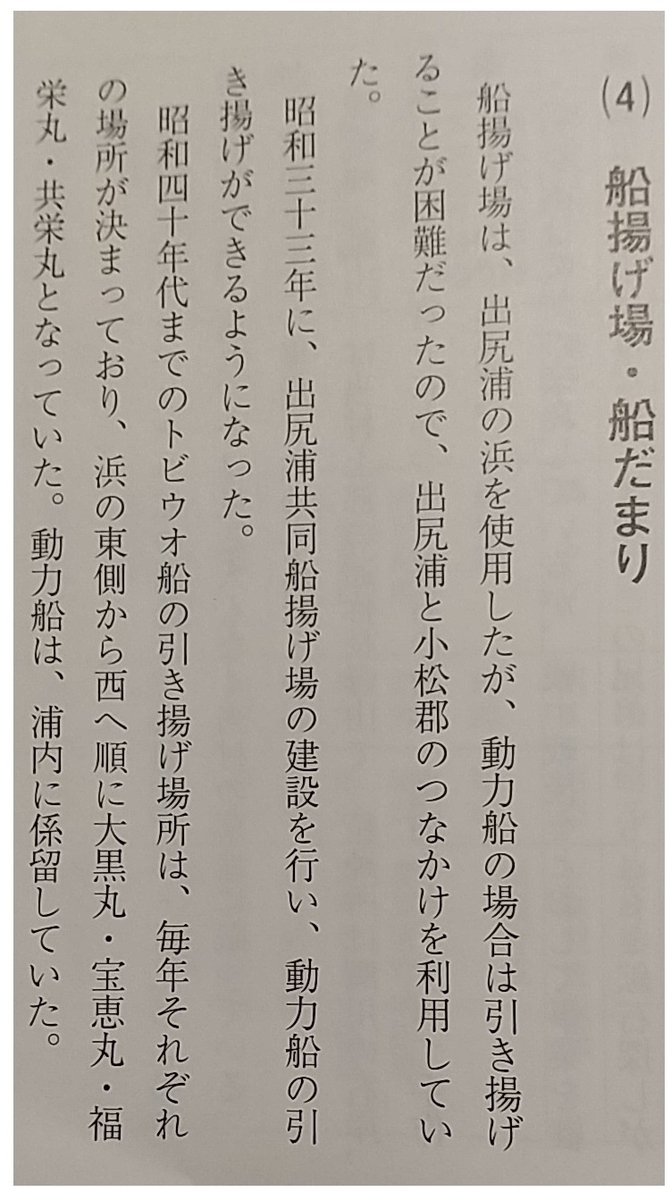 (4) 船揚げ場・船だまり
船揚げ場は、出尻浦の浜を使用したが、動力船の場合は引き揚げ
ることが困難だったので、出尻浦と小松郡のつなかけを利用してい
た。
昭和三十三年に、出尻浦共同船揚げ場の建設を行い、動力船の引
き揚げができるようになった。
昭和四十年代までのトビウオ船の引き揚げ場所は、毎年それぞれ
の場所が決まっており、浜の東側から西へ順に大黒丸・宝恵丸・福
栄丸・共栄丸となっていた。動力船は、浦内に係留していた。